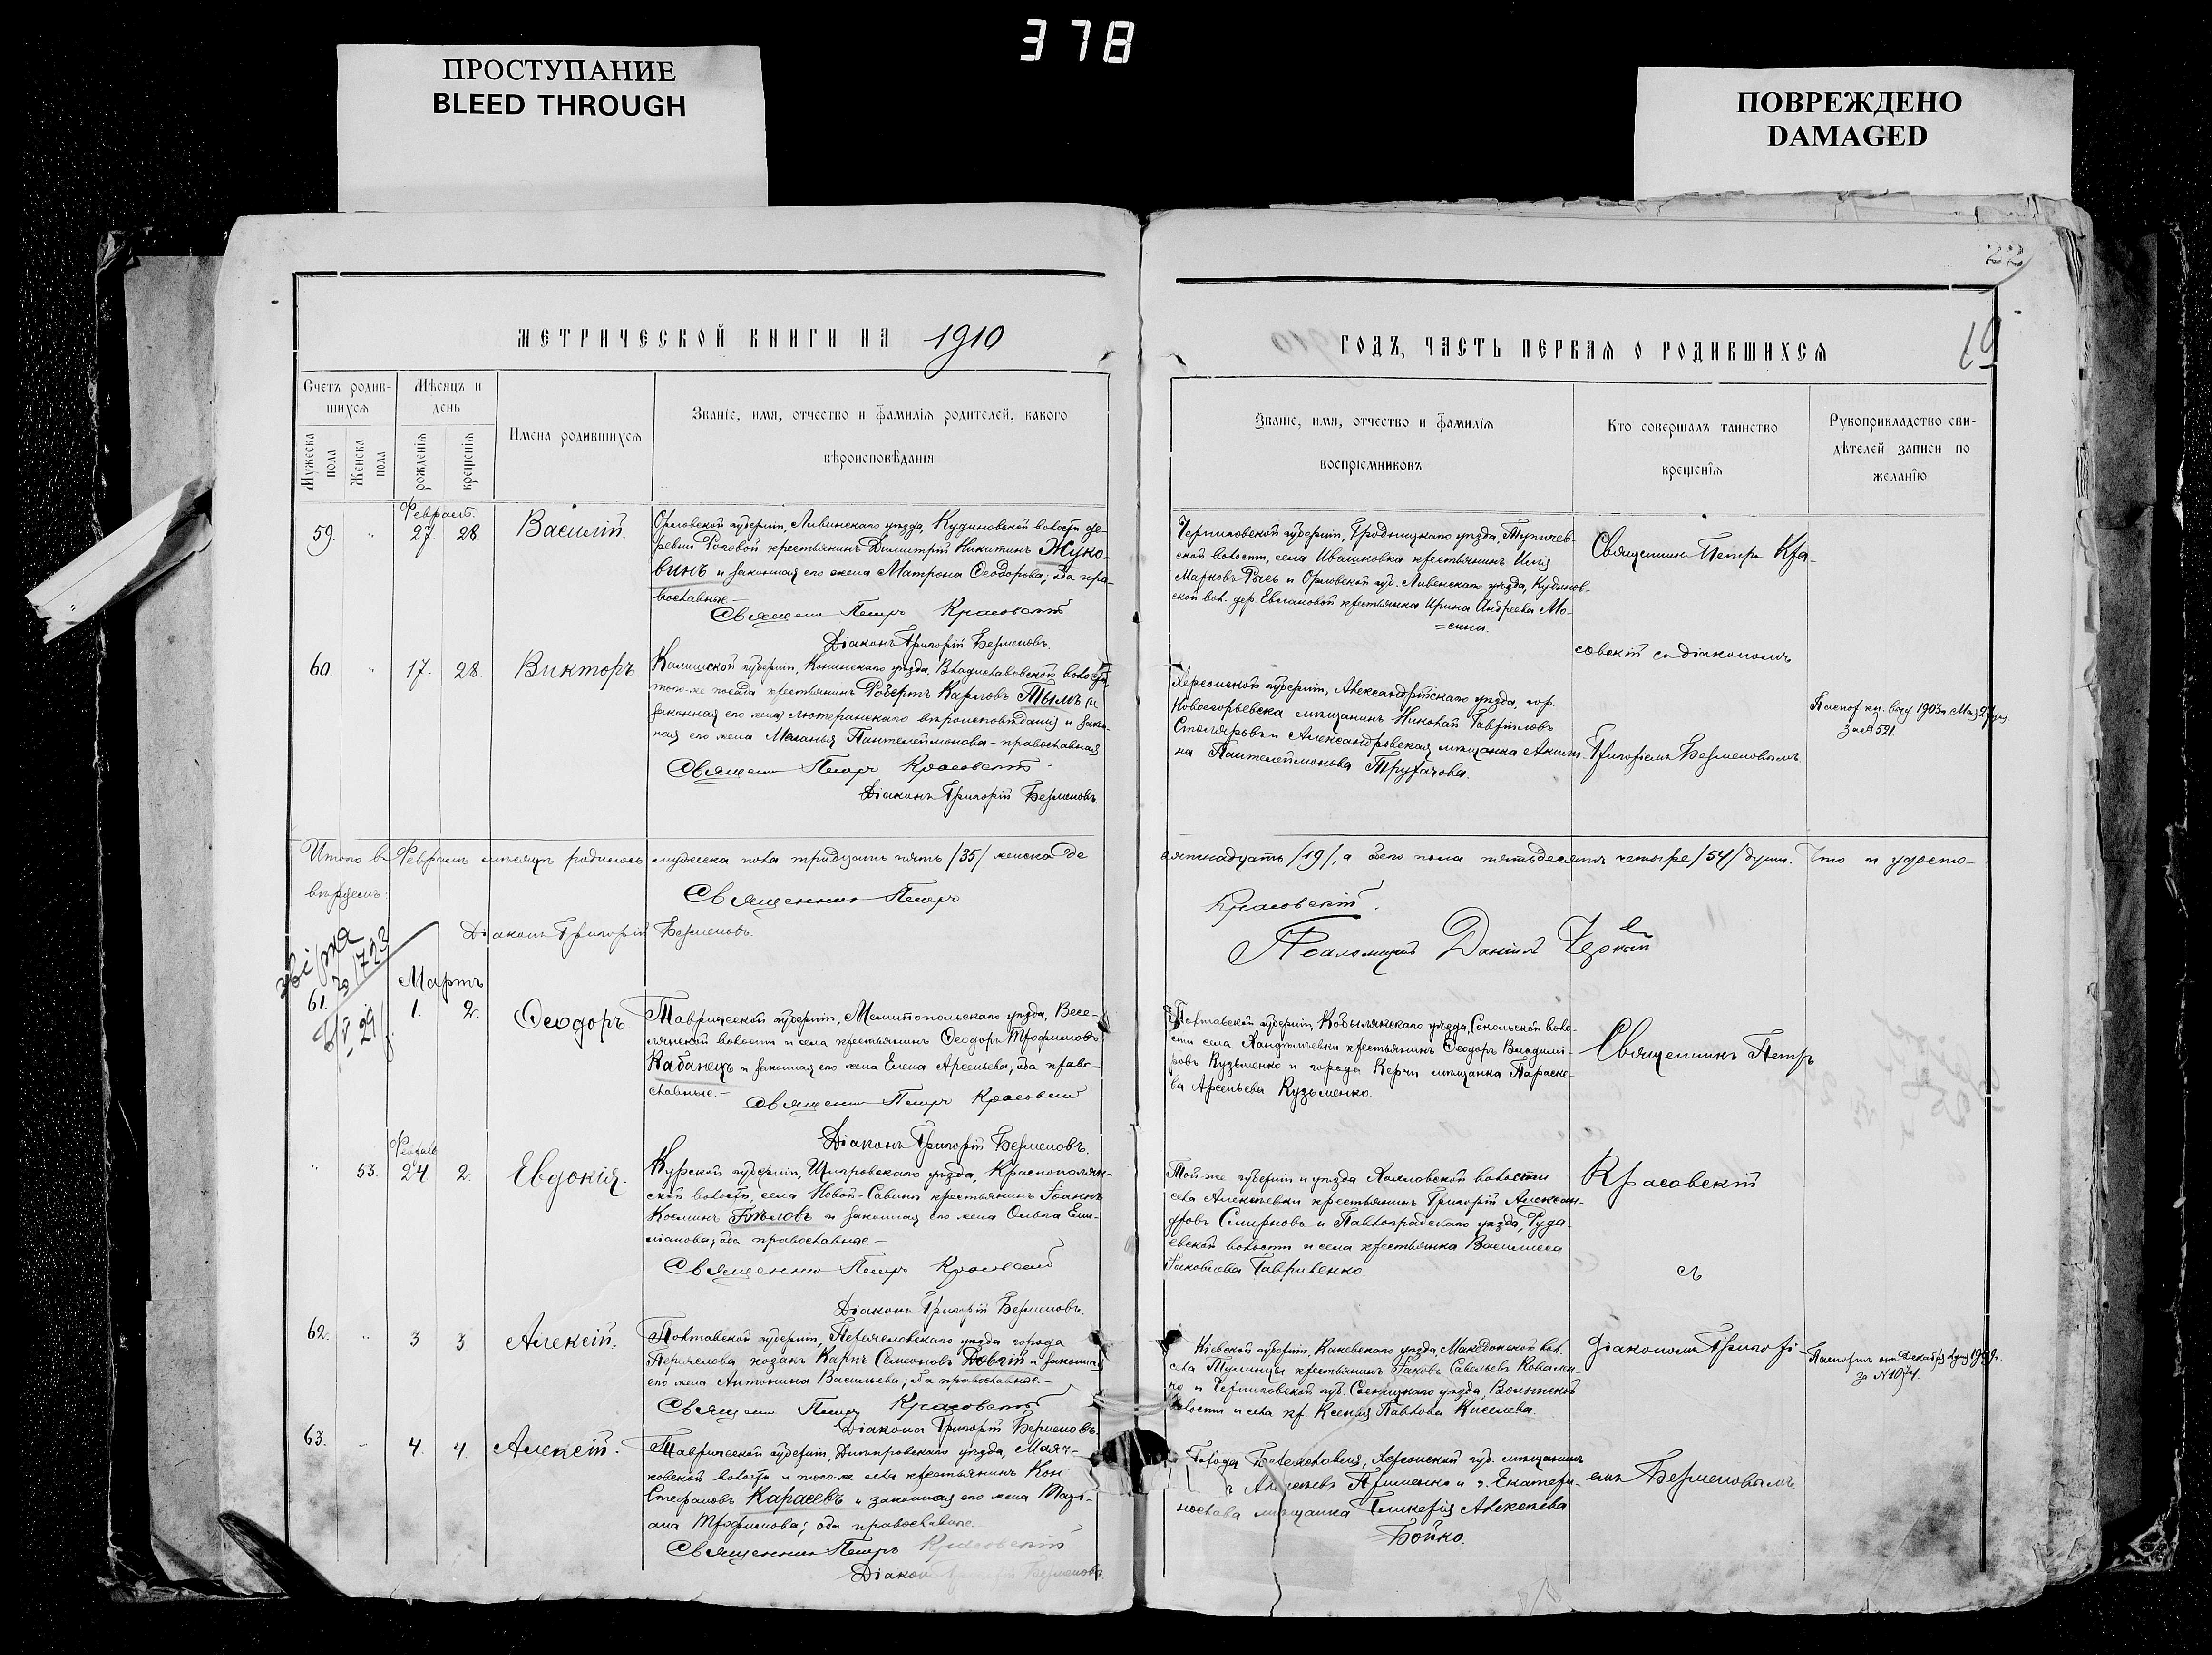 378
ПРОСТУПАНИЕ
BLEED THROUGH
ПОВРЕЖДЕНО
DAMAGED
22
19
МЕТРИЧЕСКОЙ КНИГИ НА 1910
ГОДЪ, ЧАСТЬ ПЕРВАЯ О РОДИВШИХСЯ
Счетъ родив-
шихся
Мужеска
пола
Женска
пола
Мѣсяцъ и
день
рожденія
крещенія
Имена родившихся
Званіе, имя, отчество и фамилія родителей, какого
вѣроисповѣданія
Званіе, имя, отчество и фамилія
воспріемниковъ
Кто совершалъ таинство
крещенія
Рукоприкладство сви-
дѣтелей записи по
желанію
59. " 27. 28. Василій.
Орловской губерніи, Ливенскаго уѣзда, Кудиновской волости, де-
ревни Роговой крестьянинъ Димитрій Никитинъ Жуко-
винъ и законная его жена Матрона Ѳеодорова; оба пра-
вославные.-
Священникъ Петръ Красовскій
Діаконъ Григорій
Черниговской губерніи, Городницкаго уѣзда, Тупичев-
ской волости, села Ивашковка крестьянинъ Илія
Марковъ и Орловской губ. Ливенскаго уѣзда, Кудинов-
ской вол. дер. Евлановой крестьянка Ирина Андреева Мо-
=сина.
Священникъ Петръ Кра-
совскій съ діакономъ
60. " 17. 28. Викторъ.
Калишской губерніи, Конинскаго уѣзда, Владиславовской волости,
того-же посада крестьянинъ Робертъ Карловъ Тымъ (и
законная его жена) лютеранскаго вѣроисповѣданія и закон-
ная его жена Меланья Пантелеймонова - православная
Священникъ Петръ Красовскій
Діаконъ Григорій
Херсонской губерніи, Александрійскаго уѣзда, гор.
Новогеоргіевска мѣщанинъ Николай Гавріиловъ
Столяровъ и Александровская мѣщанка
на Пантелеймонова Трухачова.
Григоріемъ
1903г. Мая 27 дня
за № 521
Итого въ Февралѣ мѣсяцѣ родилось мужеска пола тридцать пять /35/ женска де
вятнадцать /19/, а всего пола пятьдесятъ четыре /54/ души. Что и удосто-
вѣряемъ:
Священникъ Петръ
Красовскій.
Діаконъ Григорій
Псаломщикъ Даніилъ Черный
Мартъ
61. 1. 2. Ѳеодоръ.
Таврической губерніи, Мелитопольскаго уѣзда, Весе-
лянской волости и села крестьянинъ Ѳеодоръ Трофимовъ
Кабанецъ и законная его жена Елена Арсеньева; оба право-
славные.-
Священникъ Петръ Красовскій
Діаконъ Григорій
Полтавской губерніи, Кобылякскаго уѣзда, Сокольской воло-
сти села крестьянинъ Ѳеодоръ Владимі-
ровъ Кузьменко и города Керчи мѣщанка Параске-
ва Арсеньева Кузьменко.
Священникъ Петръ
" 53. 24 2. Евдокія.
Курской губерніи, Щигровскаго уѣзда, Краснополян-
ской волости, села Новой-Савины крестьянинъ Іоаннъ
Косминъ Бѣловъ и законная его жена Ольга Еми-
ліанова; оба православные.-
Священникъ Петръ Красовскій
Діаконъ Григорій
Той-же губерніи и уѣзда волости
села Алексѣевки крестьянинъ Григорій Алексан-
дровъ Смирновъ и Павлоградскаго уѣзда,
волости и села крестьянка Василисса
Іаковлева Гавриленко.
Красовскій
съ
62. " 3 3 Алексій.
Полтавской губерніи, Переяславскаго уѣзда города
Переяслова козакъ Карпъ Семеоновъ Довгій и законная
его жена Антонина Васильева; оба православные.-
Священникъ Петръ Красовскій
Діаконъ Григорій
Кіевской губерніи, Каневскаго уѣзда, Македонской вол.
села Тулинцы крестьянинъ Іаковъ Савельевъ Ковален-
ко и Черниговской губ. уѣзда,
волости и села кр. Ксенія Павлова Киселева.
діакономъ Григорі-
Паспортъ отъ Декабря
за № 1074.
63. 4. 4. Алексій.
Таврической губерніи, Днѣпровскаго уѣзда, Маяч-
ковской волости и того-же села крестьянинъ
Стефановъ Карасевъ и законная его жена Маріа-
ана Трофимова; оба православные.
Священникъ Петръ Красовскій
Діаконъ
Города Херсонской губ. мѣщанинъ
и г. Екатери-
нослава мѣщанка Гликерія Алексѣева
Бойко.
емъ